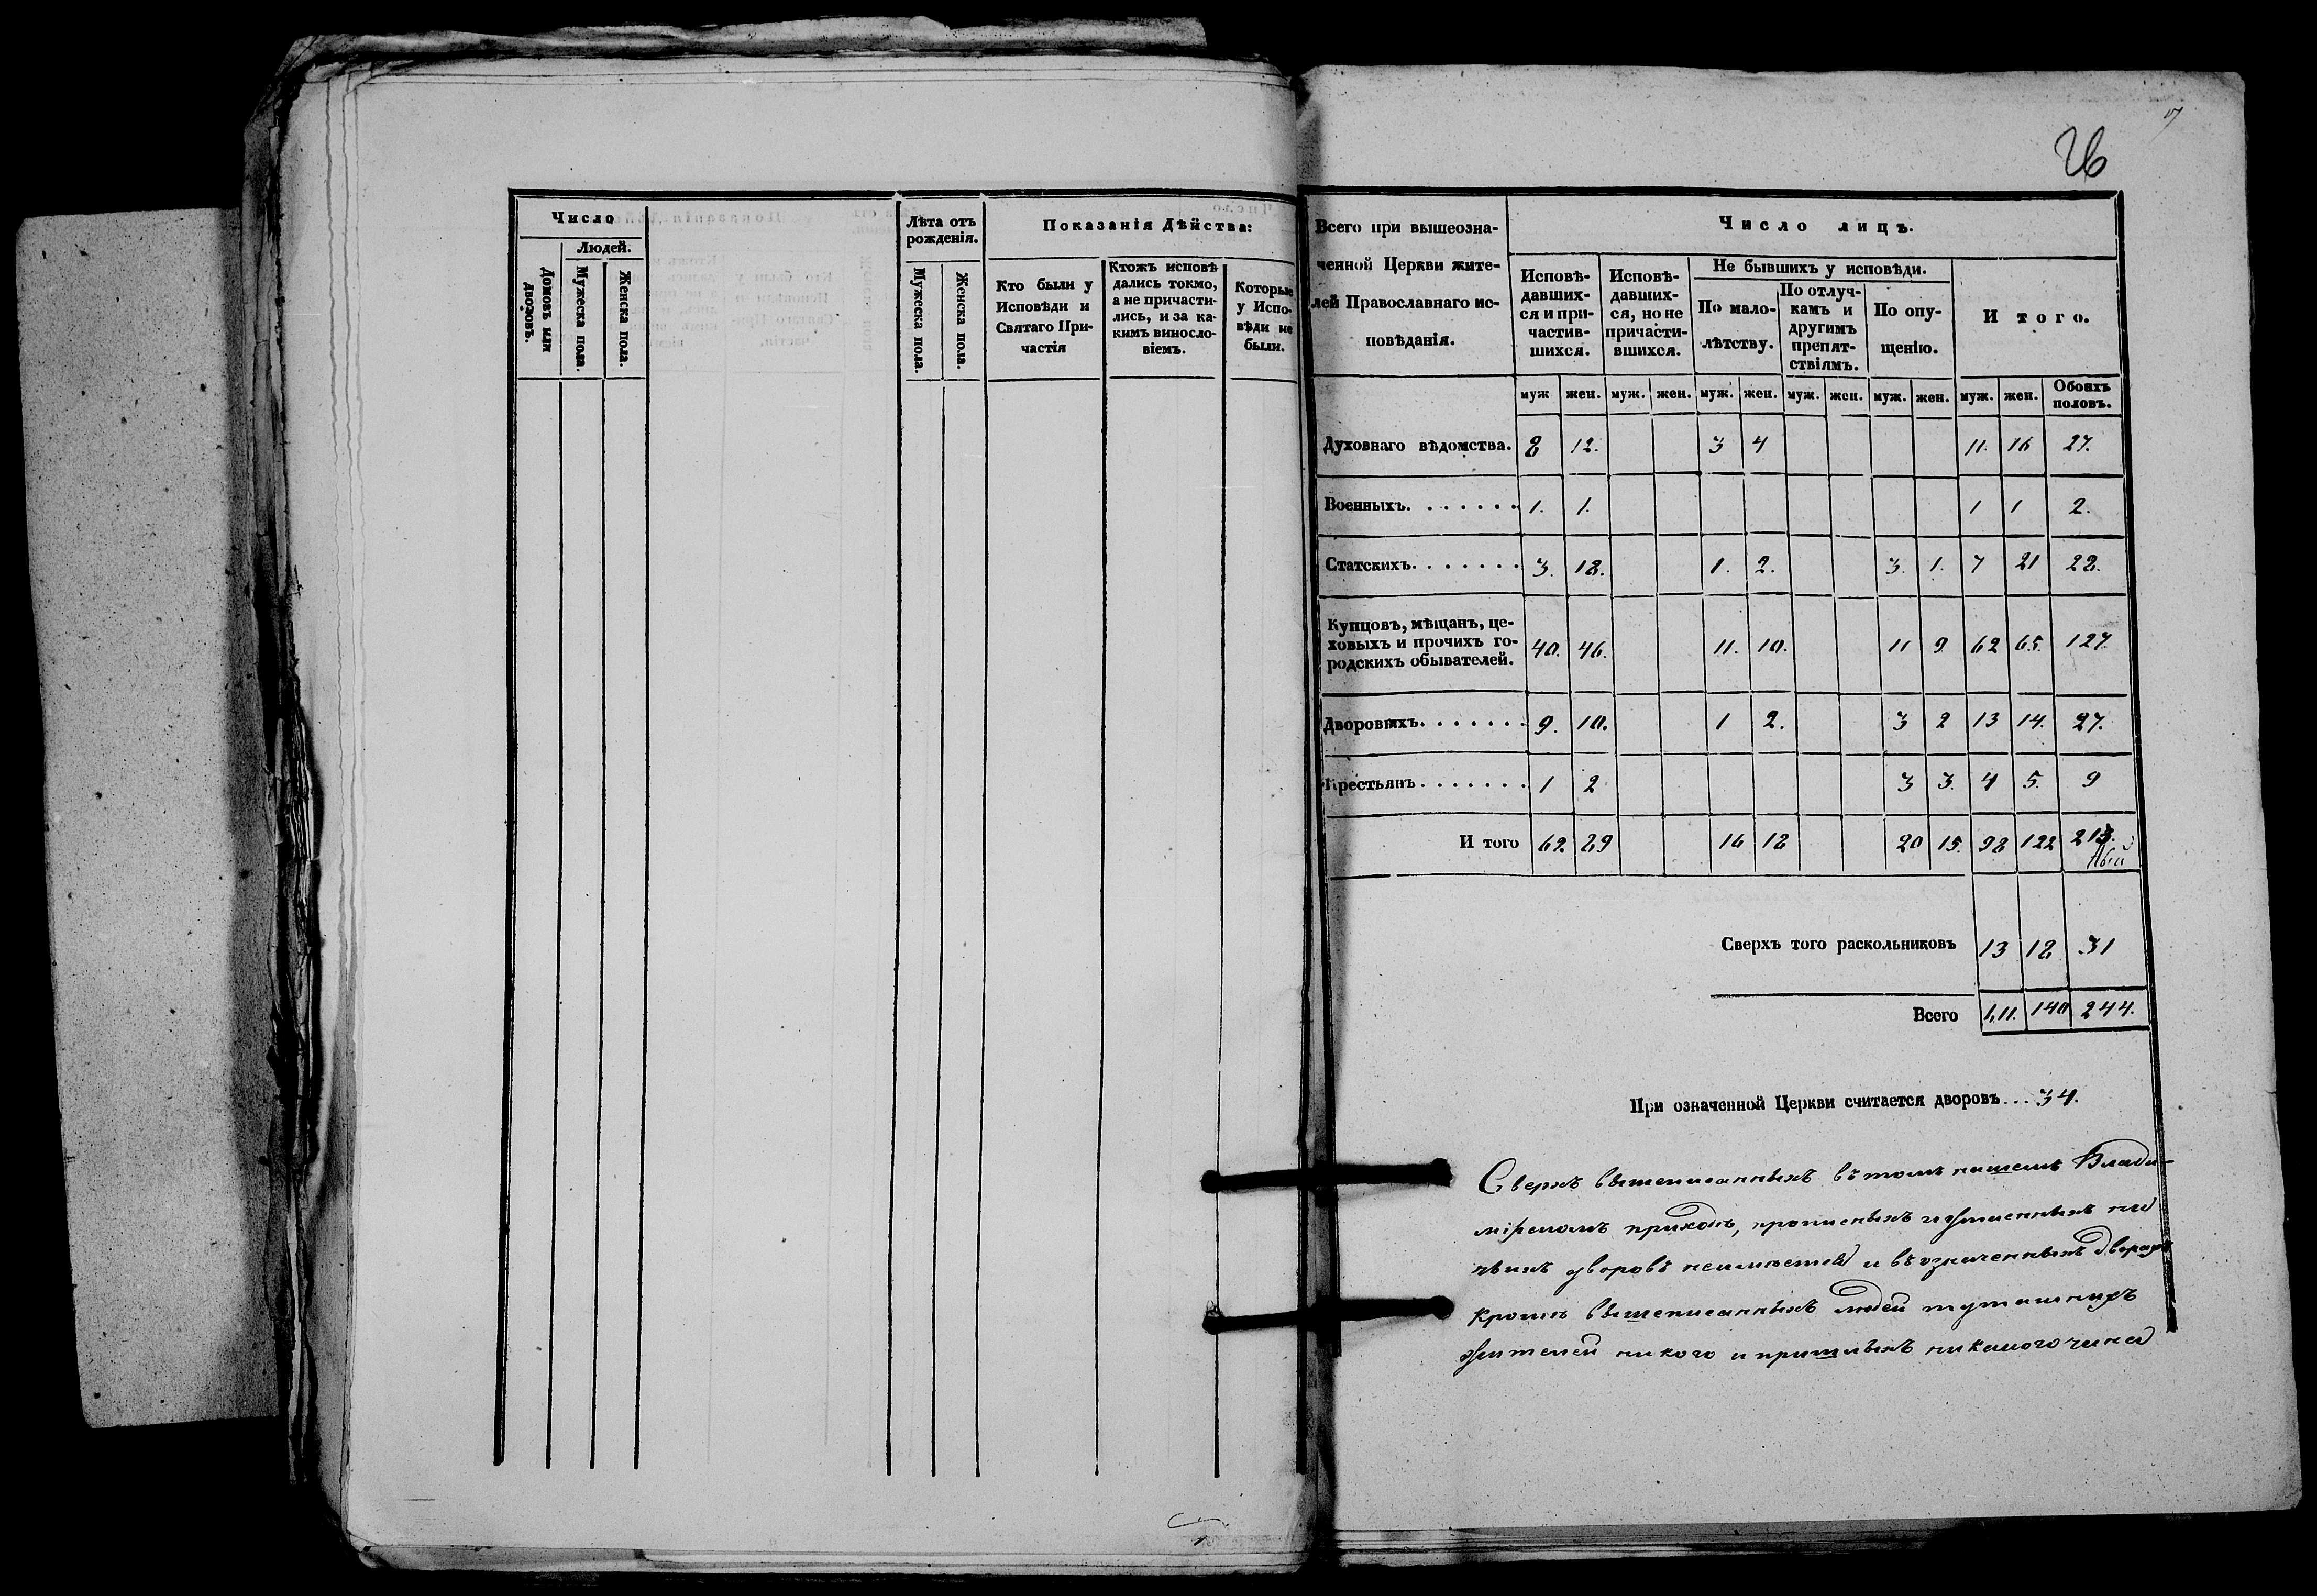 Число
Людей.
Домовъ или дворовъ.
Мужеска пола.
Женска пола.
Лѣта отъ
рожденія.
Мужеска пола.
Женска пола.
Показанія Дѣйства:
Кто были у
Исповѣди и
Святаго При-
частія
Ктожъ исповѣ
дались токмо,
а не причасти-
лись, и за ка-
кимъ винослo-
віемъ.
Которые
у Испо-
вѣди не
были.
26
Всего при вышеозна-
ченной Церкви жите-
лей Православнаго ис-
повѣданія.
Число лицъ.
Исповѣ-
давших-
ся и при-
частив-
шихся.
Исповѣ-
давших-
ся, но не
причасти-
вшихся.
Не бывшихъ у исповѣди.
По мало-
лѣтству.
По отлуч-
камъ и
другимъ
препят-
ствіямъ.
По опу-
щенію.
И того.
муж жен. муж. жен. муж. жен. муж. жен. муж. жен. муж. жен. Обоихъ половъ.
Духовнаго вѣдомства. 8 12. 3 4 11. 16 27.
Военныхъ. . . . . . . 1. 1. 1 1 2.
Статскихъ. . . . . . . 3. 18. 1. 2. 3. 1. 7 21 28.
Купцовъ, мѣщанъ, це-
ховыхъ и прочихъ го-
родскихъ обывателей. 40. 46. 11. 10. 11 9 62 65. 127.
Дворовыхъ. . . . . . . 9. 10. 1 2. 3 2 13 14. 27.
Крестьянъ . . . . . . . 1 2 3 3. 4 5. 9
И того 62 89 16 18 20 15. 98 122
Сверхъ того раскольниковъ 13 18 31
Всего 111. 140 244.
При означенной Церкви считается дворовъ... 34.
Сверхъ вышеписанныхъ въ томъ нашемъ Влади-
мірскомъ приходѣ, прописныхъ и утаенныхъ ни
чьихъ дворовъ неимѣется и въ означенныхъ дворахъ
кромѣ вышеписанныхъ людей тутошнихъ
жителей никого и пришлыхъ никакого чина